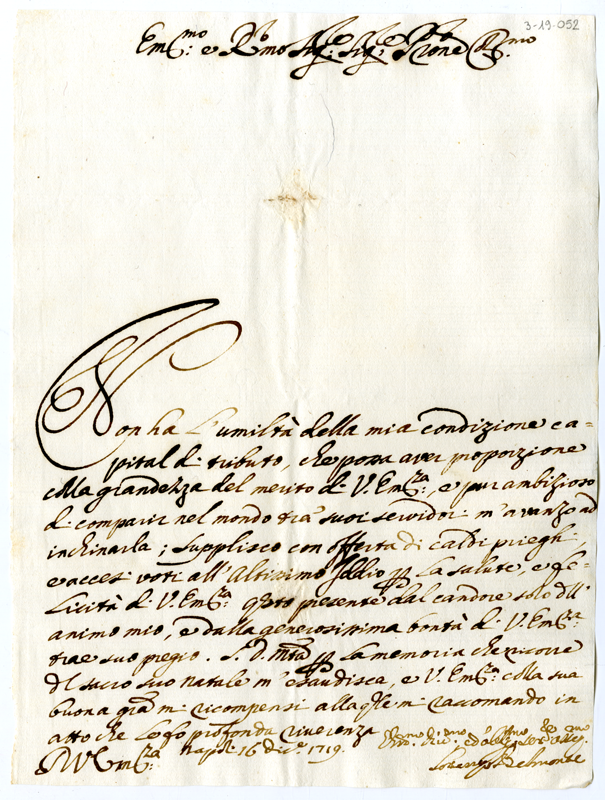 3-19-052
Em.mo e R.mo Sig.r Sig.r P.rone
Non ha l'umiltà della mia condizione ca-
pital di tributo, che possa aver proporzione
colla grandezza del merito di V. Em.za, e pur ambizioso
di comparir nel mondo trà suoi servidori m'avanzo ad
inchinarla; supplisco con offerta di caldi prieghi
e accesi voti all'Altissimo Iddio p la salute, e fe-
licità di V. Em.za q.sto presente dal candore solo dell'
animo mio, e dalla generosissima bontà di V. Em.za
trae suo pregio. S. D. M.tà p la memoria che ricorre
del sacro suo natale m'esaudisca, e V. Em.za colla sua
buona gr.a mi ricompensi alla q.le mi raccomando in
atto che le fo profonda riverenza
D V Em.za Napoli 16 Dic.e 1719.
Lorenzo Belmonte